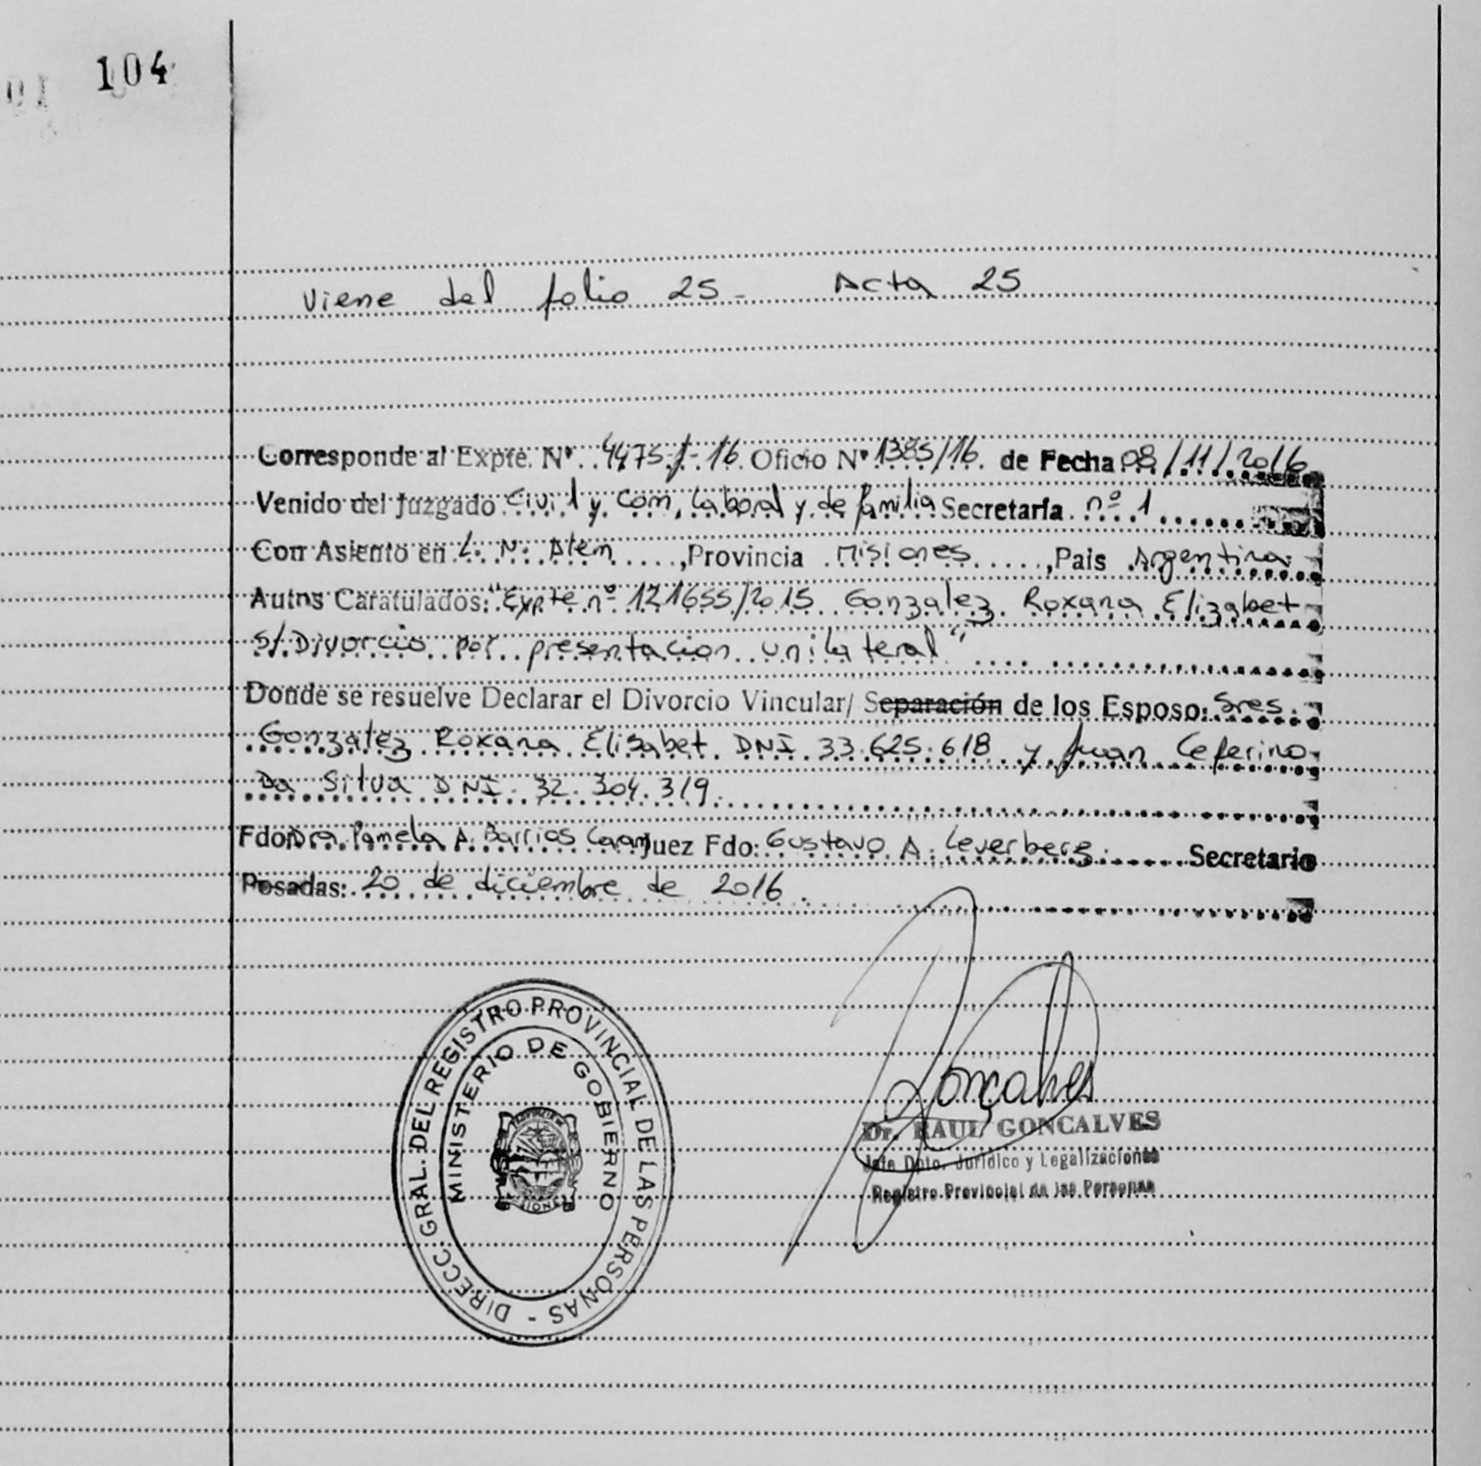 104
viene del folio 25 - Acta 25
Corresponde al Expte. Nº 4475-J-16 Oficio Nº 1385/16 de Fecha 08/11/2016
Venido del Juzgado Civil y Com, Laboral y de familia Secretaría nº 1
Con Asiento en L. N. Alem, Provincia Misiones, País Argentina
Autos Caratulados: "Expte nº 121655/2015 Gonzalez Roxana Elizabet
S/ Divorcio por presentacion unilateral"
Donde se resuelve Declarar el Divorcio Vincular/ Separación de los Esposo: Sres.
Gonzalez Roxana Elisabet DNI 33.625.618 y Juan Ceferino
Da Silva DNI. 32.304.319.
Fdo: Dra. Pamela A. Barrios Juez Fdo: Gustavo A. Leverberg. Secretario
Posadas: 20 de diciembre de 2016
DIRECC. GRAL. DEL REGISTRO PROVINCIAL DE LAS PERSONAS -
MINISTERIO DE GOBIERNO
Gonçalves
Dr. RAUL GONCALVES
Jefe Dpto. Jurídico y Legalizaciones
Registro Provincial de las Personas